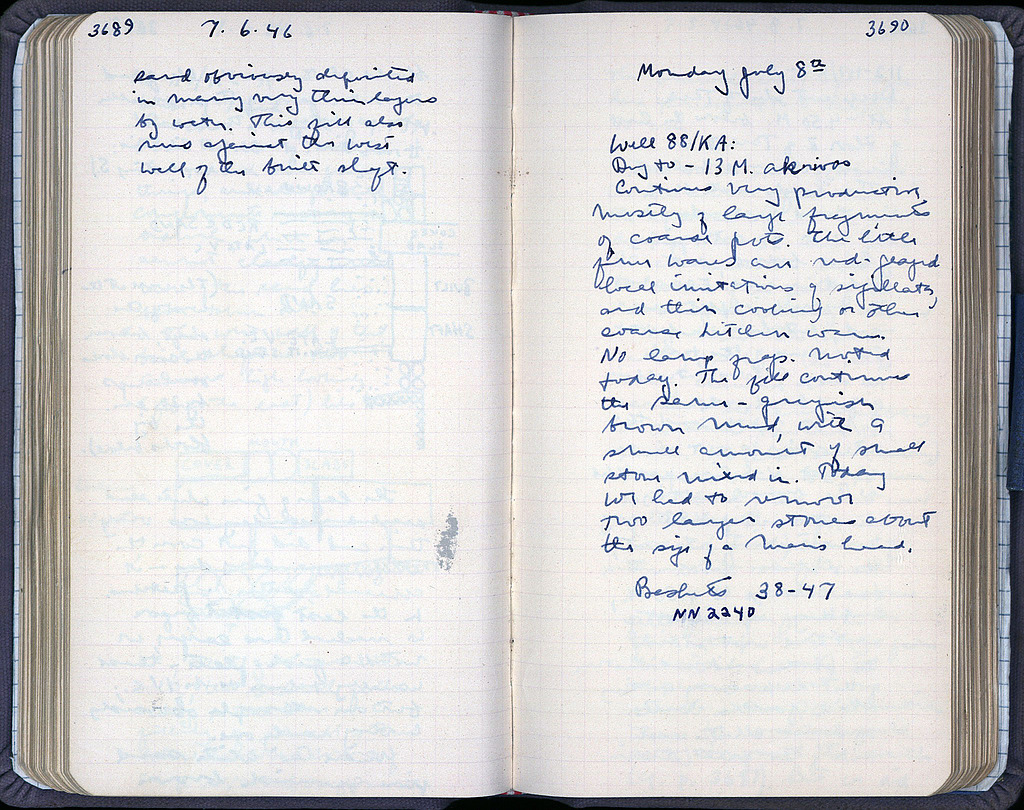 3689
7. 6. 46
sand obviously deposited
in many very thin layers
by water. This fill also
runs against the west
wall of the built shaft.
3690
Monday July 8th
Well 88/KA:
Dug to - 13 M. akrivos
Continues very productive,
mostly of large fragments
of coarse pots. The little
finer wares are red-glazed
local imitations of sigillata,
and thin cooking or other
coarse kitchen wares.
No lamp frags. noted
today. The fill continues
the same - greyish
brown mud, with a
small amount of small
stone mixed in. Today
we had to remove
two larger stones about
the size of a man's head.
Baskets 38-47
NN 2240